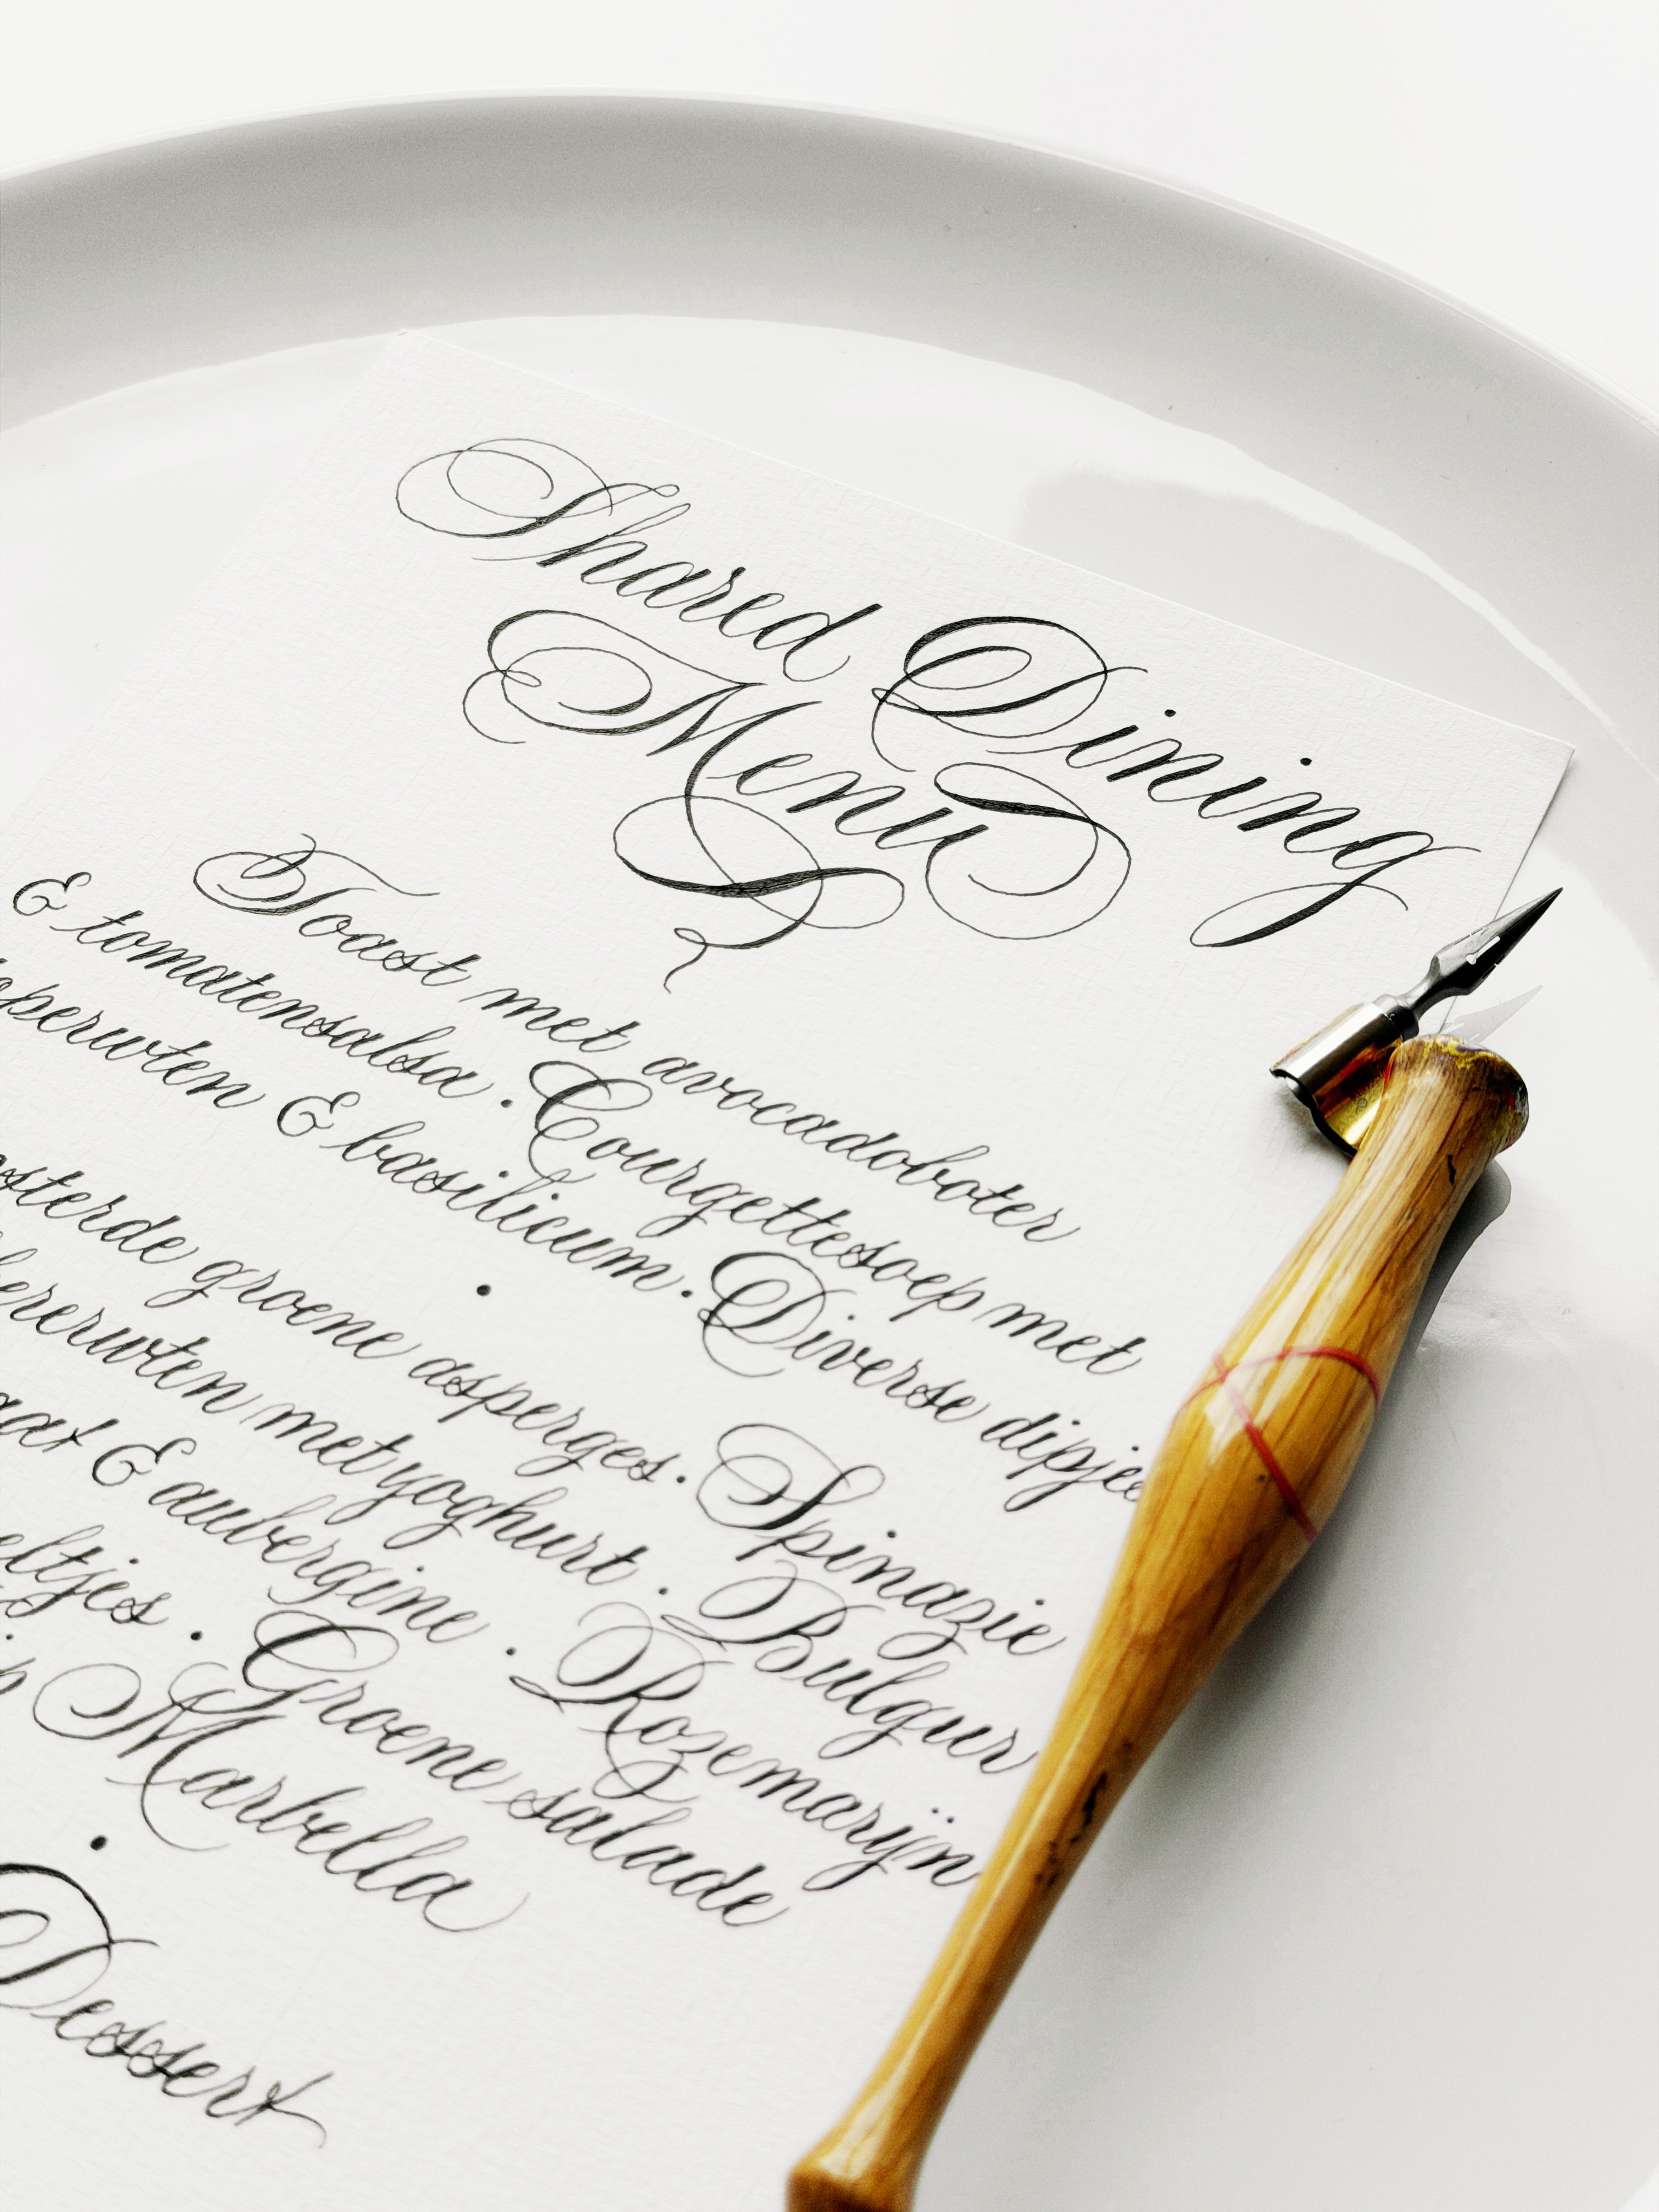 Shared Dining
Menu
Toast met avocadoboter
& tomatensalsa . Courgettesoep met
operwten & basilicum . Diverse dipje
.
osterde groene asperges . Spinazie
ererwten met yoghurt . Bulgur
& aubergine . Rozemarijn
eltjes . Groene salade
Marbella
.
Dessert